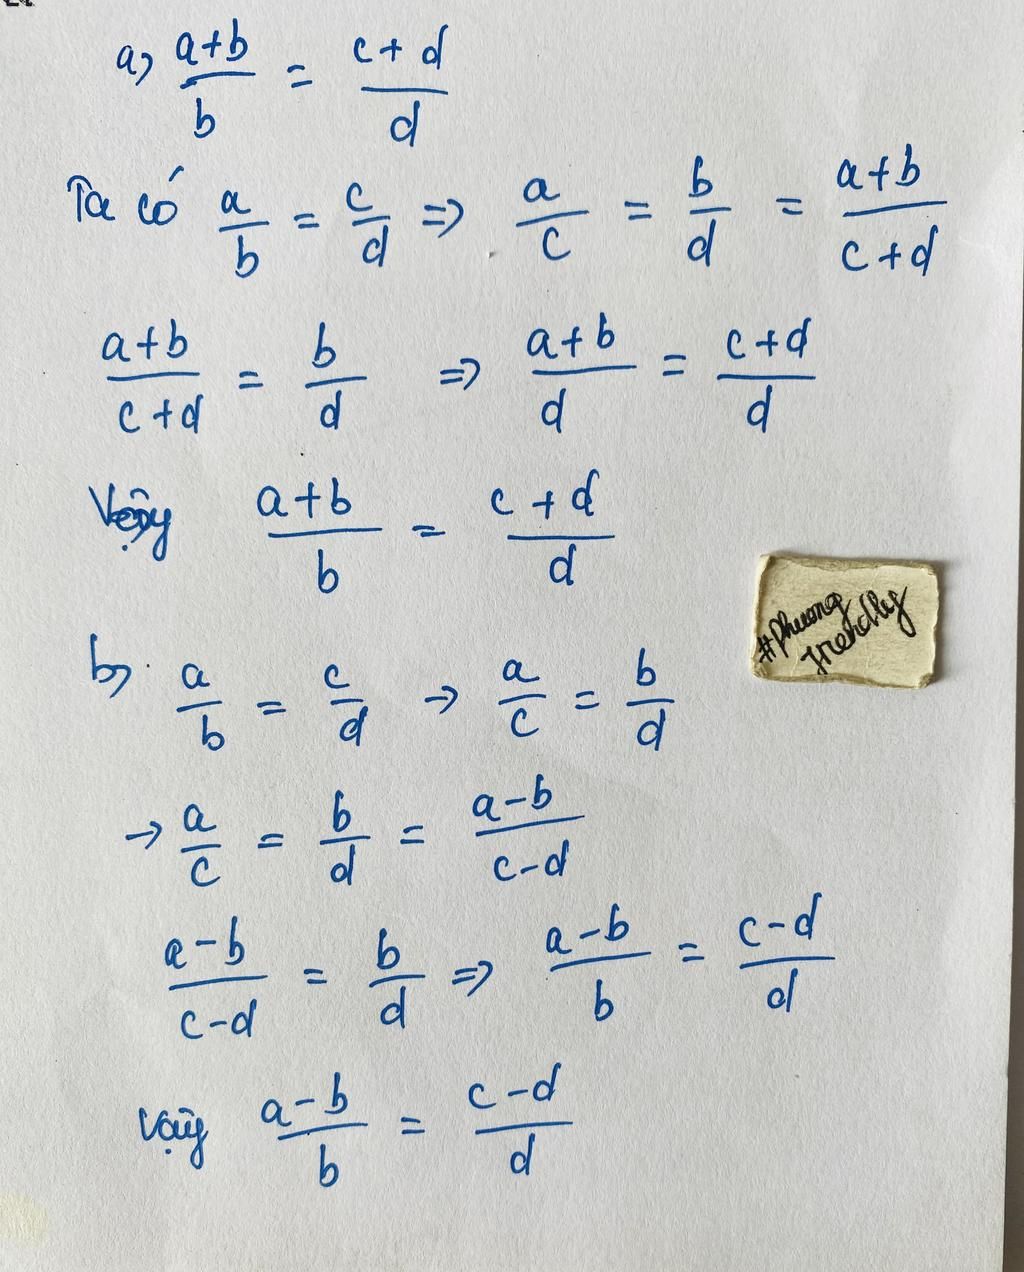 a, (a+b)/b = (c+d)/d
Ta có a/b = c/d => a/c = b/d = (a+b)/(c+d)
(a+b)/(c+d) = b/d => (a+b)/d = (c+d)/d
Vậy (a+b)/b = (c+d)/d
#phuong
friendly
b, a/b = c/d → a/c = b/d
→ a/c = b/d = (a-b)/(c-d)
(a-b)/(c-d) = b/d => (a-b)/b = (c-d)/d
Vậy (a-b)/b = (c-d)/d